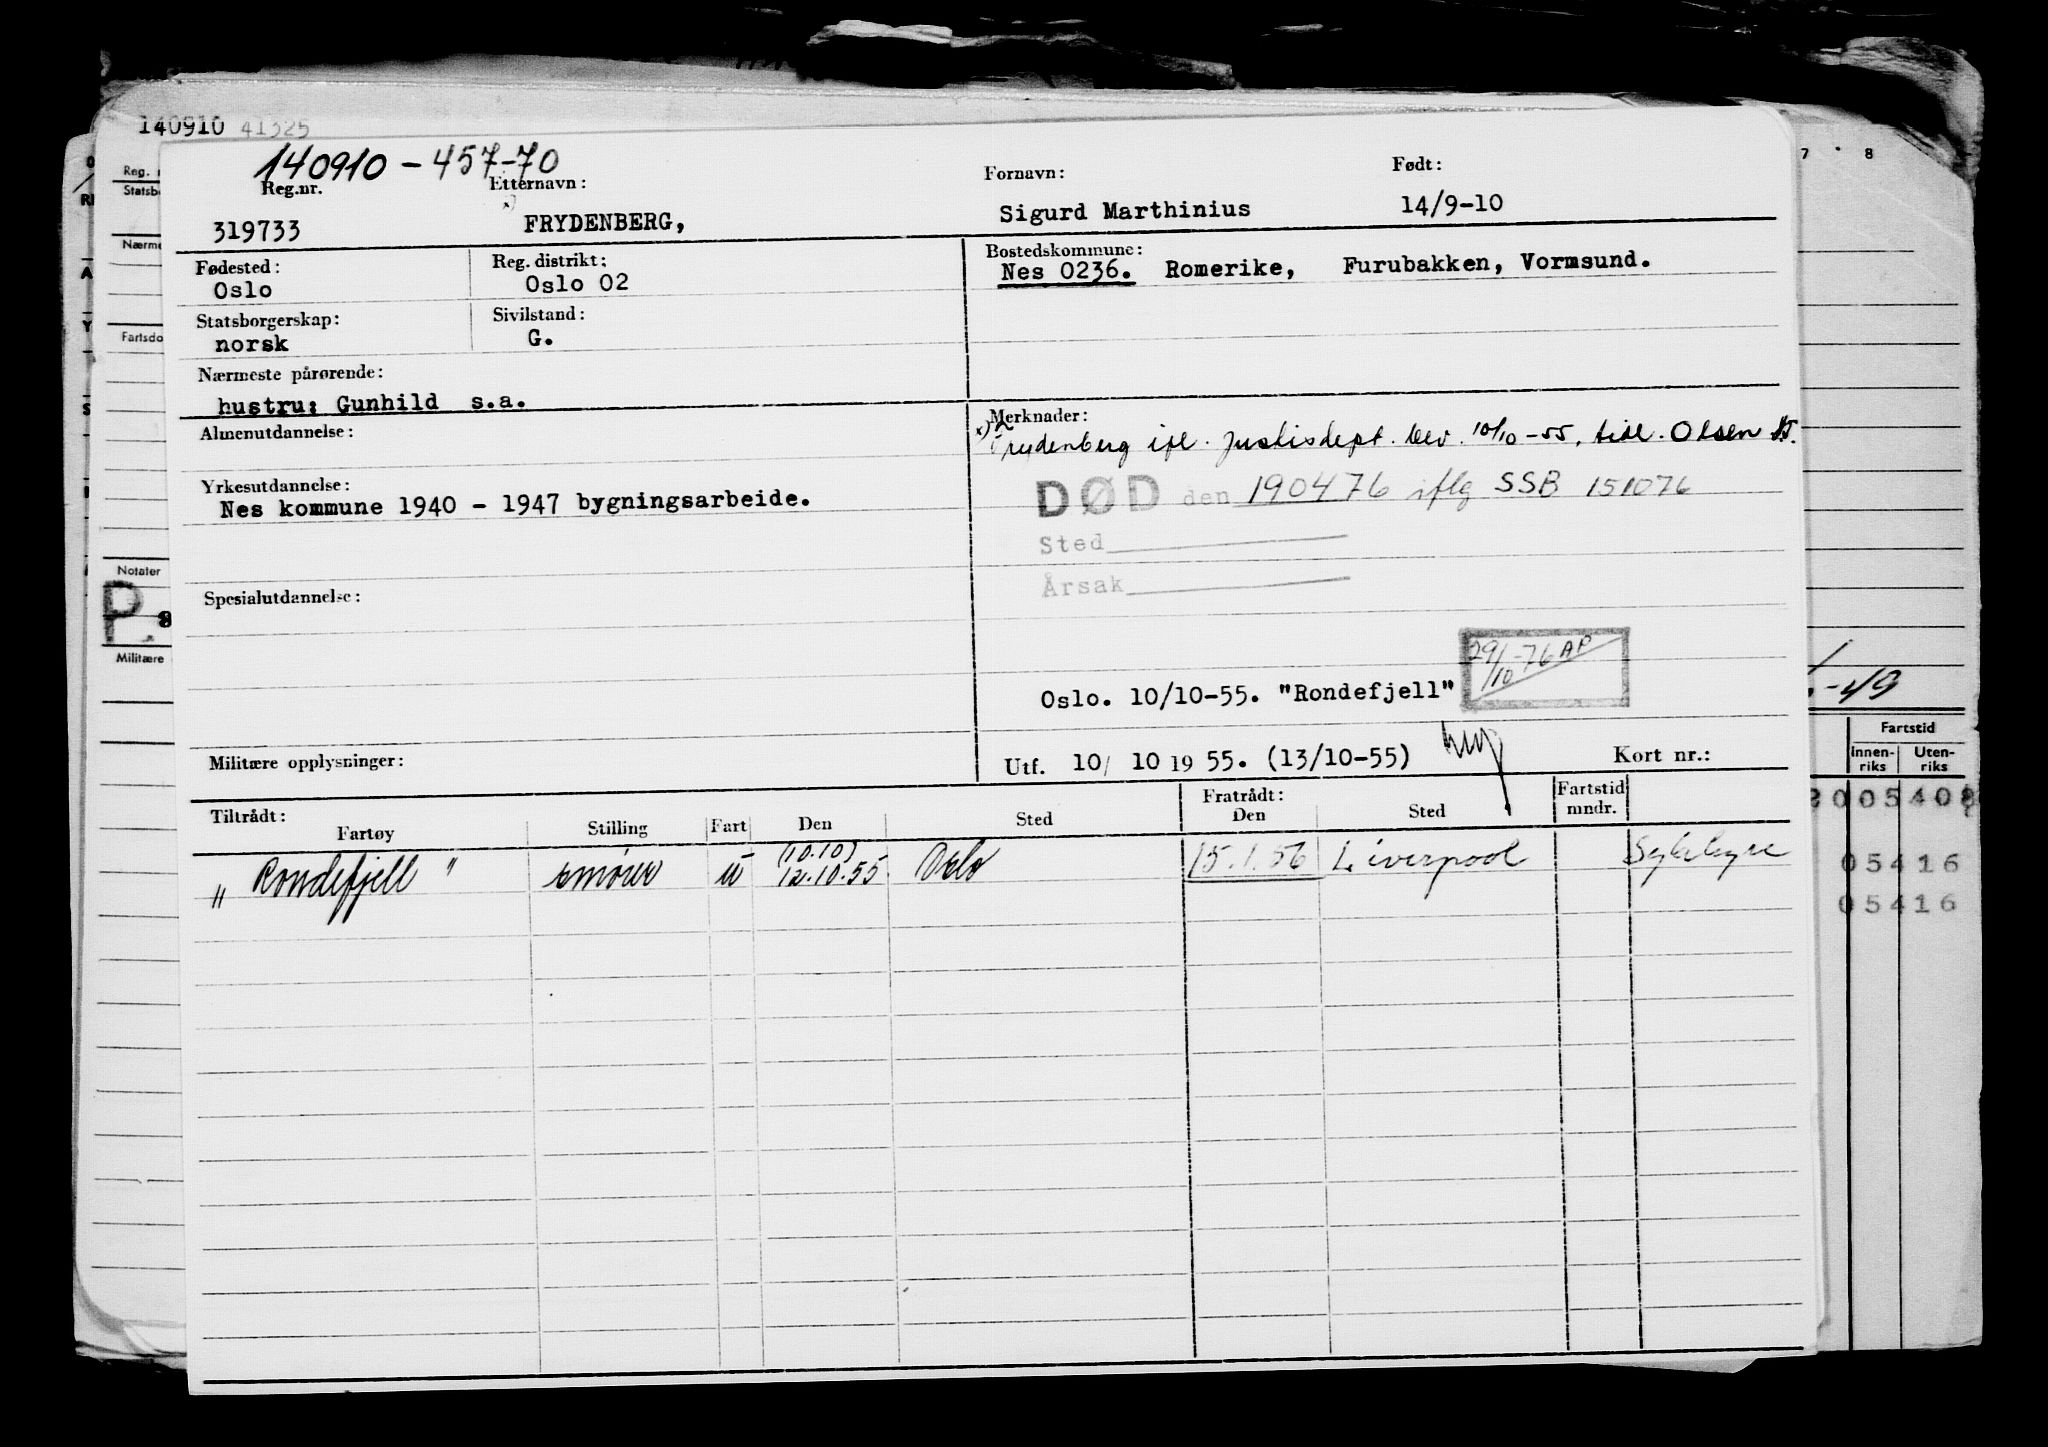 140910 41325
140910 - 457-70
Reg.nr. Etternavn: Fornavn: Født:
x)
319733 FRYDENBERG, Sigurd Marthinius 14/9-10
Fødested: Reg. distrikt: Bostedskommune:
Oslo Oslo 02 Nes 0236. Romerike, Furubakken, Vormsund.
Statsborgerskap: Sivilstand:
norsk G.
Nærmeste pårørende:
hustru: Gunhild s.a.
Almenutdannelse: Merknader:
x) Frydenberg ifl. Justisdept. bev. 10/10-55, tidl. Olsen
Yrkesutdannelse:
Nes kommune 1940 - 1947 bygningsarbeide.
DØD den 190476 iflg SSB 151076
Sted
Årsak
Spesialutdannelse:
29/10-76 AP
Oslo. 10/10-55. "Rondefjell"
Militære opplysninger: Utf. 10/ 10 19 55. (13/10-55) Kort nr.:
Tiltrådt: Fratrådt: Fartstid
Fartøy Stilling Fart Den Sted Den Sted mndr.
(10.10)
"Rondefjell" smører u 12.10.55 Oslo 15.1.56 Liverpool Sykehyre
Reg. n
Statsb
Nærme
Fartsdo
Notater
P.
Militære
7 8
-49
Fartstid
Innen-riks Uten-riks
05408
05416
05416